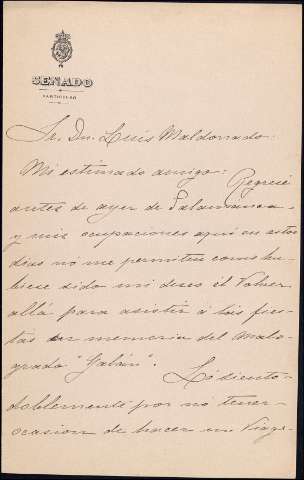 SENADO
PARTICULAR
Sr. Dn. Luis Maldonado:
Mi estimado amigo: Regresé
antes de ayer de Salamanca
y mis ocupaciones aquí en estos
dias no me permiten como hu-
biese sido mi deseo el volver
allá para asistir á las fies-
tas en memoria del malo-
grado "Galán". Lo siento
doblemente por no tener
ocasion de hacer un viage